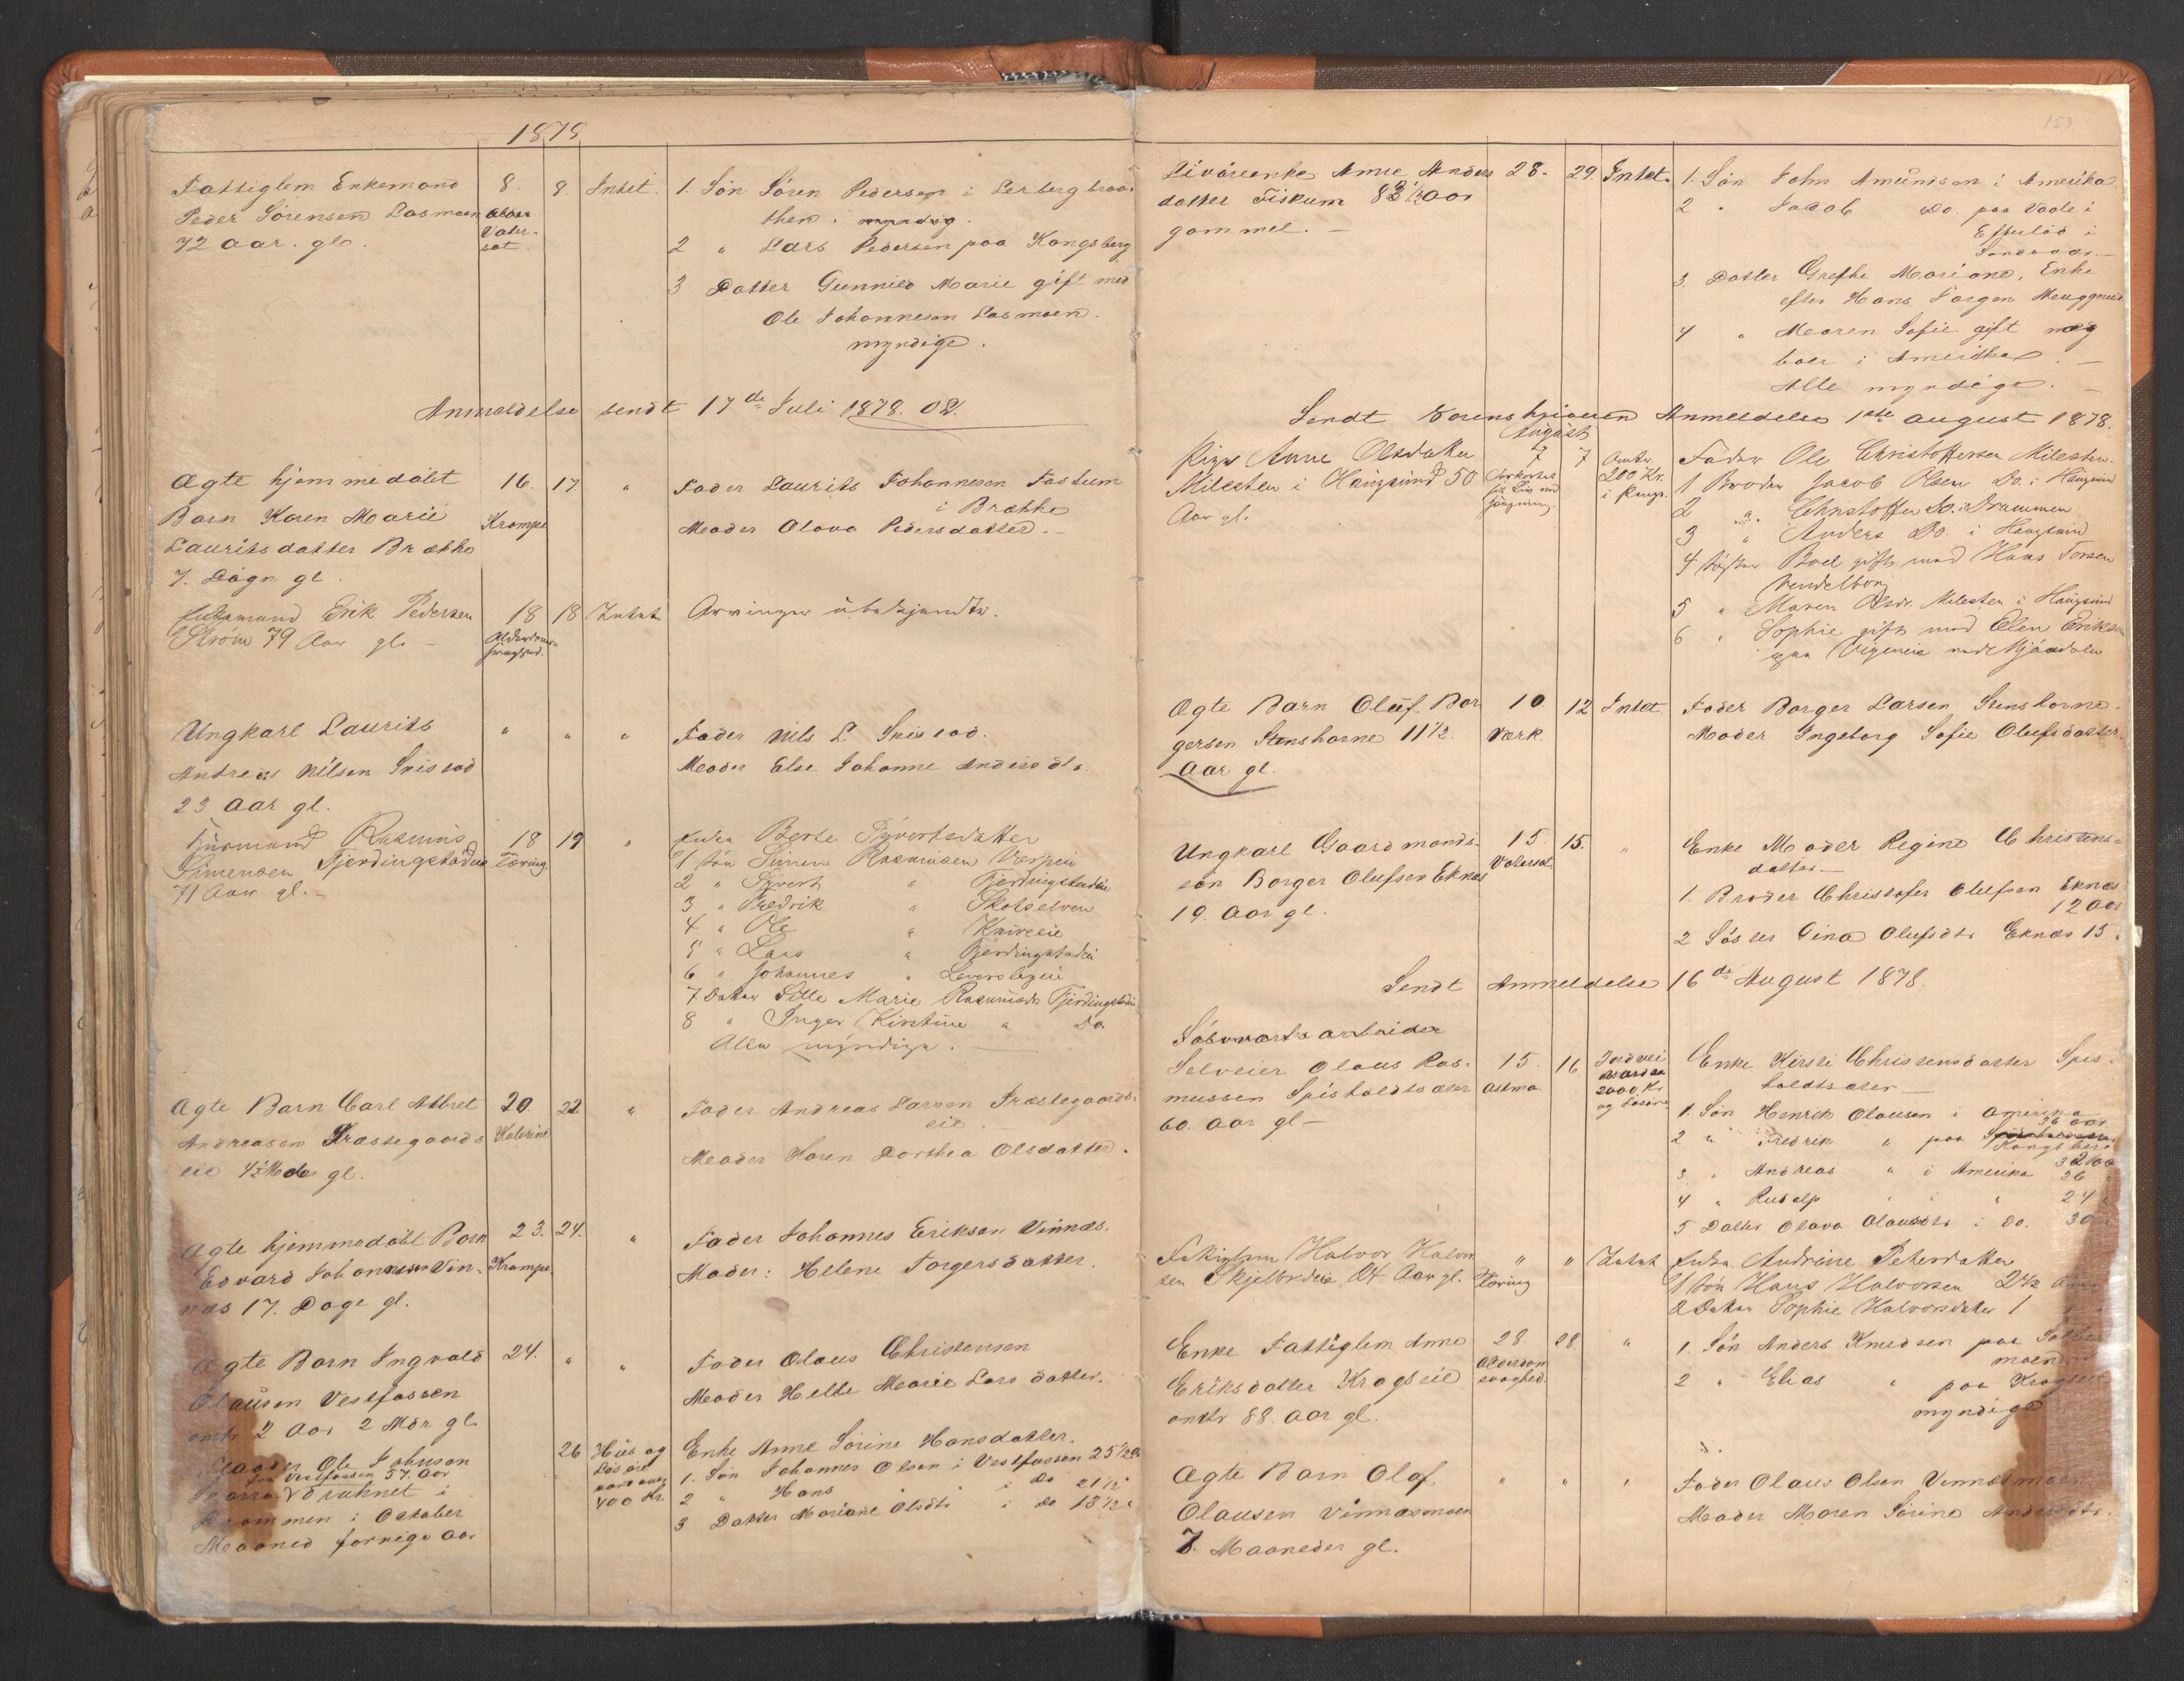 1878
Fattiglem Enkemand 8. 8. Intet. 1. Søn Søren Pedersen i Lerbergbraa-
Peder Sørensen Losmoen then. myndig.
72 aar. gl. Vatersot. 2 " Lars Pedersen paa Kongsberg
3 Datter Gunnild Marie gift med
Ole Johannesen Losmoen.
myndige.
Anmeldelse sendt 17de Juli 1878.
Ægte hjemmedöbt 16. 17. " Fader Laurits Johannesen Fostum
i Brække
Barn Karen Marie Krampe Moder Olava Pedersdatter.
Lauritsdatter Brække
7. Døgn gl.
Erik Pedersen 18 18 Intet Arvinger ubekjendte.
Strøm 79 Aar gl. Alderdoms-
svaghed.
Ungkarl Laurits " " " Fader Nils L
Andreas Nilsen Moder Else Johanne Andersdt.
23 Aar gl.
Husmand Rasmus 18 19 " Enke Berte Syvertsdatter
Simensen Fjerdingstadeie Tæring. 1 Søn Simen Rasmussen
71 Aar gl. 2 " Syvert " Fjerdingstadeie
3 " Fredrik " Skotselven
4 " Ole "
5 " Lars " Fjerdingstadeie
6 " Johannes "
7 Datter Sille Marie Rasmusdt. Fjerdingstadeie
8 " Inger Kirstine " Do.
Alle myndige.
Ægte Barn Carl Albret 20 22 " Fader Andreas Larsen Præstegaards-
eie
Andreasen Præstegaards Kolerine
eie 4½ Mdr gl. Moder Karen Dorthea Olsdatter.
Ægte hjemmedöbt Barn 23. 24. " Fader Johannes Eriksen Vinnæs.
Edvard Johannesen Vin- Krampe. Moder: Helene Torgersdatter.
næs 17. Dage gl.
Ægte Barn Ingvald 24. " " Fader Olaus Christensen
Olausen Vestfossen Moder Helle Marie Larsdatter.
omtr 2 Aar 2 Mdr gl.
Ole Johnsen 26 Hus og Enke Anne Sørine Hansdatter.
fra Vestfossen 57. Aar Løsøre 1. Søn Johannes Olsen i Vestfossen 25½ Aar
druknet i 2 " Hans " i Do 21½
Drammen i October 400 Kr 3 Datter Mariane Olsdt. i Do 13½ "
Maaned forrige Aar
153
Livöreenke Anne Anders 28. 29. Intet. 1. Søn John Amundsen i Amerika.
datter Fiskum 83½ Aar 2 " Jacob Do. paa Vaale i
gammel. Eftelød i
Sandsvær.
3. Datter Grethe Mariane, Enke
efter Hans Jørgen
4 " Maren Sofie gift
boer i Amerika.
Alle myndige.
Sendt Sorenskriveren Anmeldelse 1ste August 1878.
August
Pige Anne Olsdatter 7 7 Omtr. Fader Ole Christoffersen Milesten.
Milesten i Haugsund 50 200 Kr. 1 Broder Jacob Olsen Do. i Haugsund
Aar gl. i Penge. 2 " Christoffer Do. i Drammen
3 " Anders Do. i Haugsund
4 Søster Boel gift med Hans
5 " Maren Olsdr. Milesten i Haugsund
6 " Sophie gift med Elen Eriksen
paa ved Mjøndalen
Ægte Barn Oluf Bor- 10 12 Intet. Fader Borger Larsen Stenshorne.
gersen Stenshorne 11½ Værk. Moder Ingeborg Sofie Olufsdatter.
Aar gl.
Ungkarl Gaardmands- 15. 15. " Enke Moder Regine Christens-
søn Borger Olufsen Eknæs Vatersot. datter
19. Aar gl. 1. Broder Christofer Olufsen Eknæs
12 Aar
2 Søster Gina Olufsdt. Eknæs 15.
Sendt Anmeldelse 16de August 1878.
arbeider
Selveier Olaus Ras- 15. 16 Jordvei Enke Kirsti Christensdatter Spis-
mussen Spisholdtsæter Astma 2000 Kr holdtsæter
60. Aar gl og Løsøre 1. Søn Henrik Olausen i Amerika
36 Aar
2 " Fredrik " paa Kongsberg
3 " Andreas " i Amerika 26
4 " Rudolf " " " 24
5 Datter Olava Olausdt. i Do. 30
Halvor Halvor- " " Intet Enke Andrine Petersdatter
sen 24 Aar gl. Tæring 1 Søn Hans Halvorsen 2½ Aar
2 Datter Sophie Halvorsdatter 1
Enke Fattiglem Anne 28. 28. " 1. Søn Anders Knudsen paa
Eriksdatter Kragseie Alderdom svaghed. moen
omtr 88. Aar gl. 2 " Elias " paa Kragseie
myndige
Ægte Barn Olaf " " " Fader Olaus Olsen Vinnæsmoen
Olausen Vinnæsmoen Moder Maren Sørine Andersdt.
7. Maaneder gl.